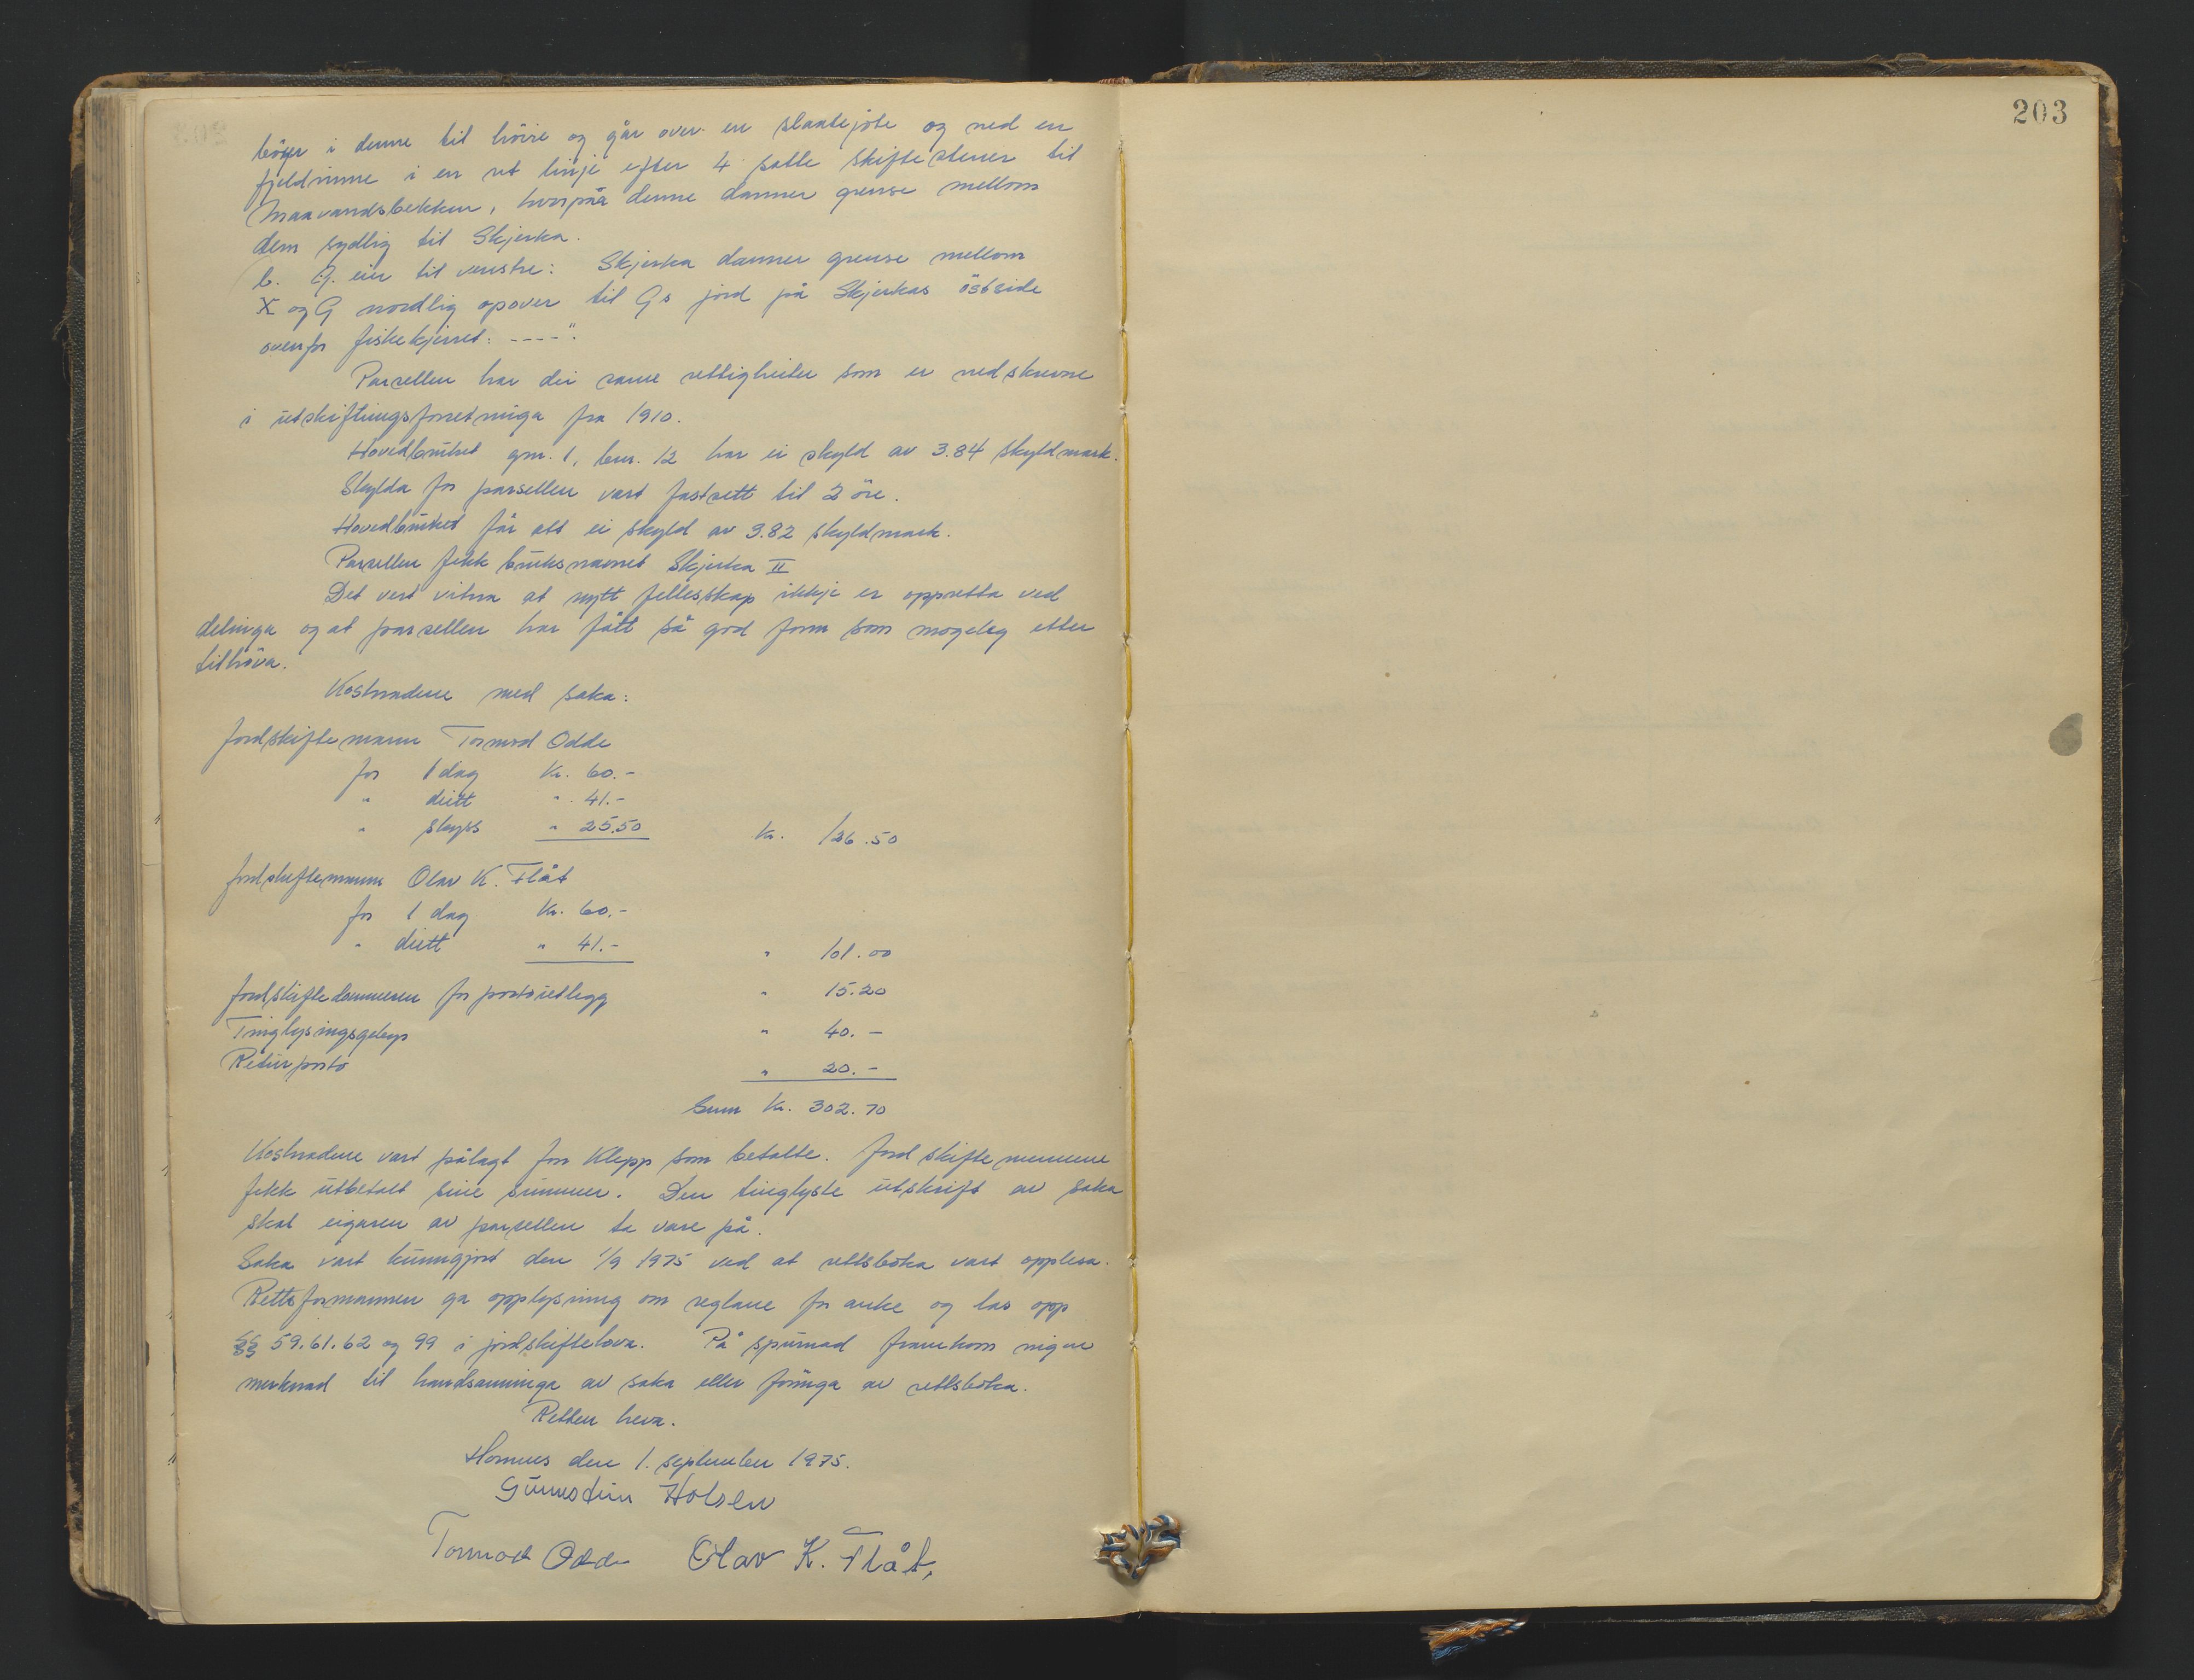 203
böyer i denne til höire og går over en slaatejote og ned en
fjeldrinne i en ret linje efter 4 satte skiftestener til
Maavandsbekken, hvorpåa denne danner grense mellom
dem sydlig til Skjerka.
b. G. eier til venstre: Skjerka danner grense mellom
X og G nordlig opover til Gs jord på Skjerkas östside
ovenfor fiskekjernet. ----".
Parsellen har dei same rettigheiter som er nedskrevne
i utskiftingsforretninga fra 1910.
Hovedbruket gnr. 1, bnr. 12 har ei skyld av 3.84 skyldmark.
Skylda for parsellen vart fastsett til 2 öre.
Hovedbruket får att ei skyld av 3.82 skyldmark.
Parsellen fekk bruksnamnet Skjerka II
Det vert vitna at nytt fellesskap ikkje er oppretta ved
delinga og at parsellen har fått så god form som mogeleg etter
tilhöva.
Kostnadene med saka:
Jordskiftemann Tormod Odde
for 1 dag Kr. 60.-
" diett " 41.-
" skyss " 25.50 Kr. 126.50
Jordskiftemann Olav K. Flåt
for 1 dag Kr. 60.-
" diett " 41.- " 101.00
Jordskiftedommeren for portoutlegg " 15.20
Tinglysingsgebyr " 40.-
Returporto " 20.-
Sum Kr. 302.70
Kostnadene vart pålagt Klepp som betalte. Jordskiftemennene
fekk utbetalt sine summer. Den tinglyste utskrift av saka
skal eigaren av parsellen ta vare på.
Saka vart kunngjort den 1/9 1975 ved at rettsboka vart opplesa.
Rettsformannen ga opplysning om reglane for anke og las opp
§§ 59.61.62 og 99 i jordskiftelova. På spurnad framkom nigen
merknad til handsaminga av saka eller föringa av rettsboka.
Retten heva.
Homnes den 1. september 1975.
Gunnstein Holsen
Tormod Odde Olav K. Flåt.